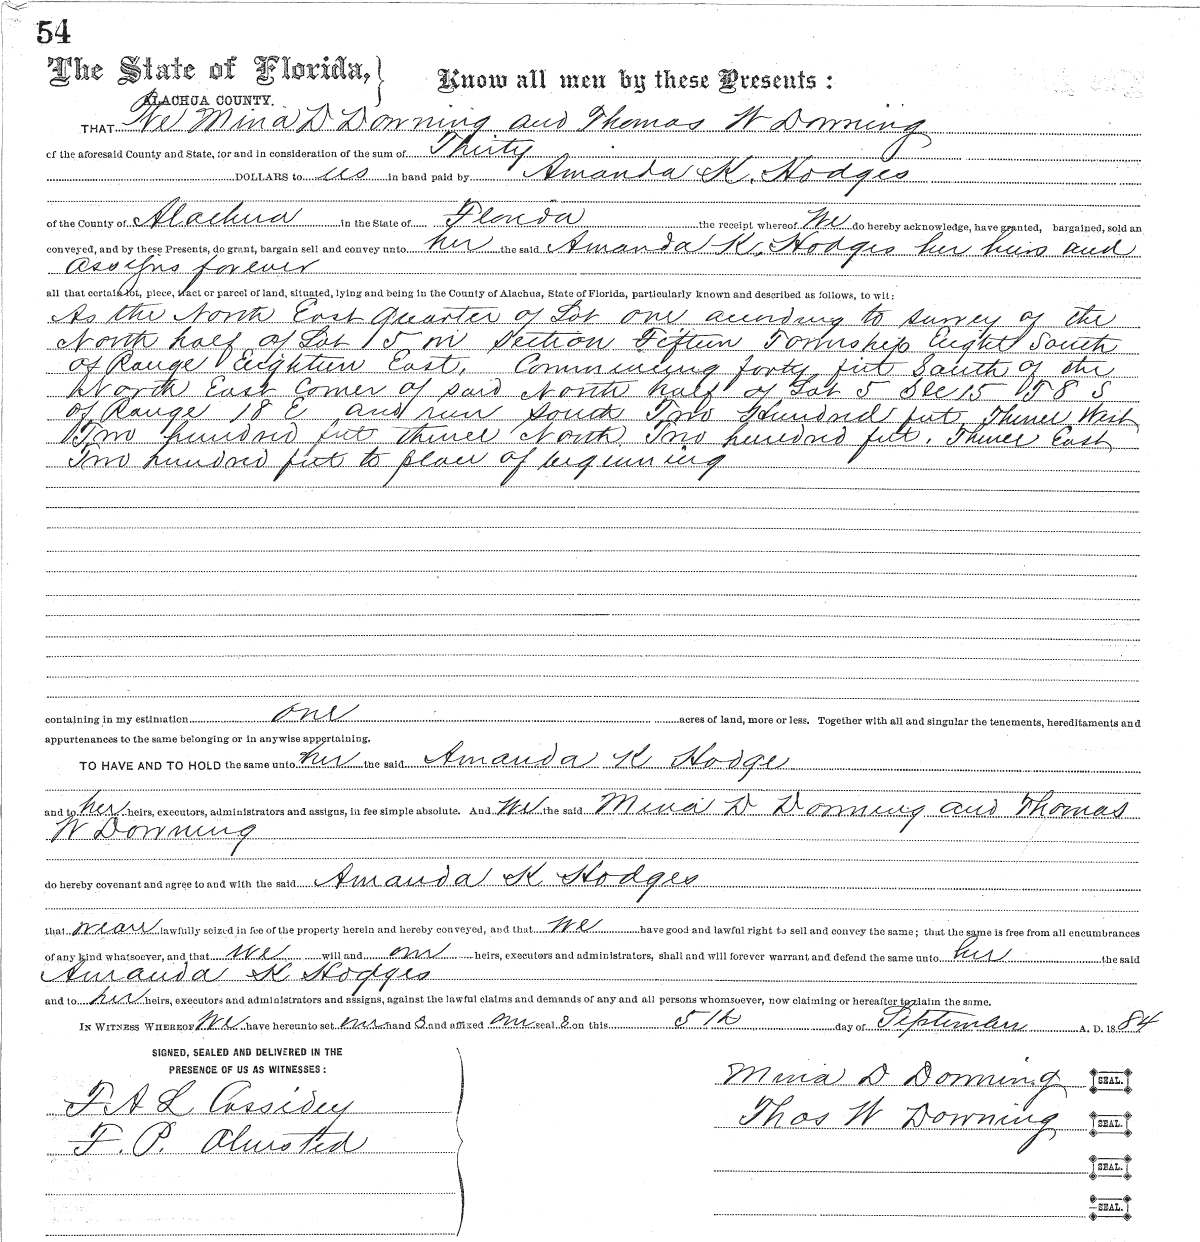 54
The State of Florida,
ALACHUA COUNTY.
Know all men by these Presents:
THAT We Mina D Downing and Thomas W Downing
of the aforesaid County and State, for and in consideration of the sum of Thirty
DOLLARS to us in hand paid by Amanda K. Hodges
of the County of Alachua in the State of Florida the receipt whereof We do hereby acknowledge, have granted, bargained, sold an
conveyed, and by these Presents, do grant, bargain sell and convey unto her the said Amanda K. Hodges her heirs and
assigns forever
all that certain lot, piece, tract or parcel of land, situated, lying and being in the County of Alachua, State of Florida, particularly known and described as follows, to wit:
As the North East Quarter of Lot one according to survey of the
North half of Lot 5 in Section Fifteen Township Eight South
of Range Eighteen East, Commencing forty feet South of the
North East Corner of said North half of Lot 5 Sec 15 T 8 S
of Range 18 E and run South Two Hundred feet, Thence West
Two hundred feet thence North Two hundred feet, Thence East
Two hundred feet to place of beginning
containing in my estimation one acres of land, more or less. Together with all and singular the tenements, hereditaments and
appurtenances to the same belonging or in anywise appertaining.
TO HAVE AND TO HOLD the same unto her the said Amanda K Hodge
and to her heirs, executors, administrators and assigns, in fee simple absolute. And We the said Mina D Downing and Thomas
W Downing
do hereby covenant and agree to and with the said Amanda K Hodges
that we are lawfully seized in fee of the property herein and hereby conveyed, and that we have good and lawful right to sell and convey the same; that the same is free from all encumbrances
of any kind whatsoever, and that we will and our heirs, executors and administrators, shall and will forever warrant and defend the same unto her the said
Amanda K Hodges
and to her heirs, executors and administrators and assigns, against the lawful claims and demands of any and all persons whomsoever, now claiming or hereafter to claim the same.
IN WITNESS WHEREOF We have hereunto set our hand s and affixed our seal s on this 5th day of September A. D. 1884
SIGNED, SEALED AND DELIVERED IN THE
PRESENCE OF US AS WITNESSES:
F A L Cassidey
F. P. Olmsted
Mina D Downing SEAL.
Thos W Downing SEAL.
SEAL.
SEAL.